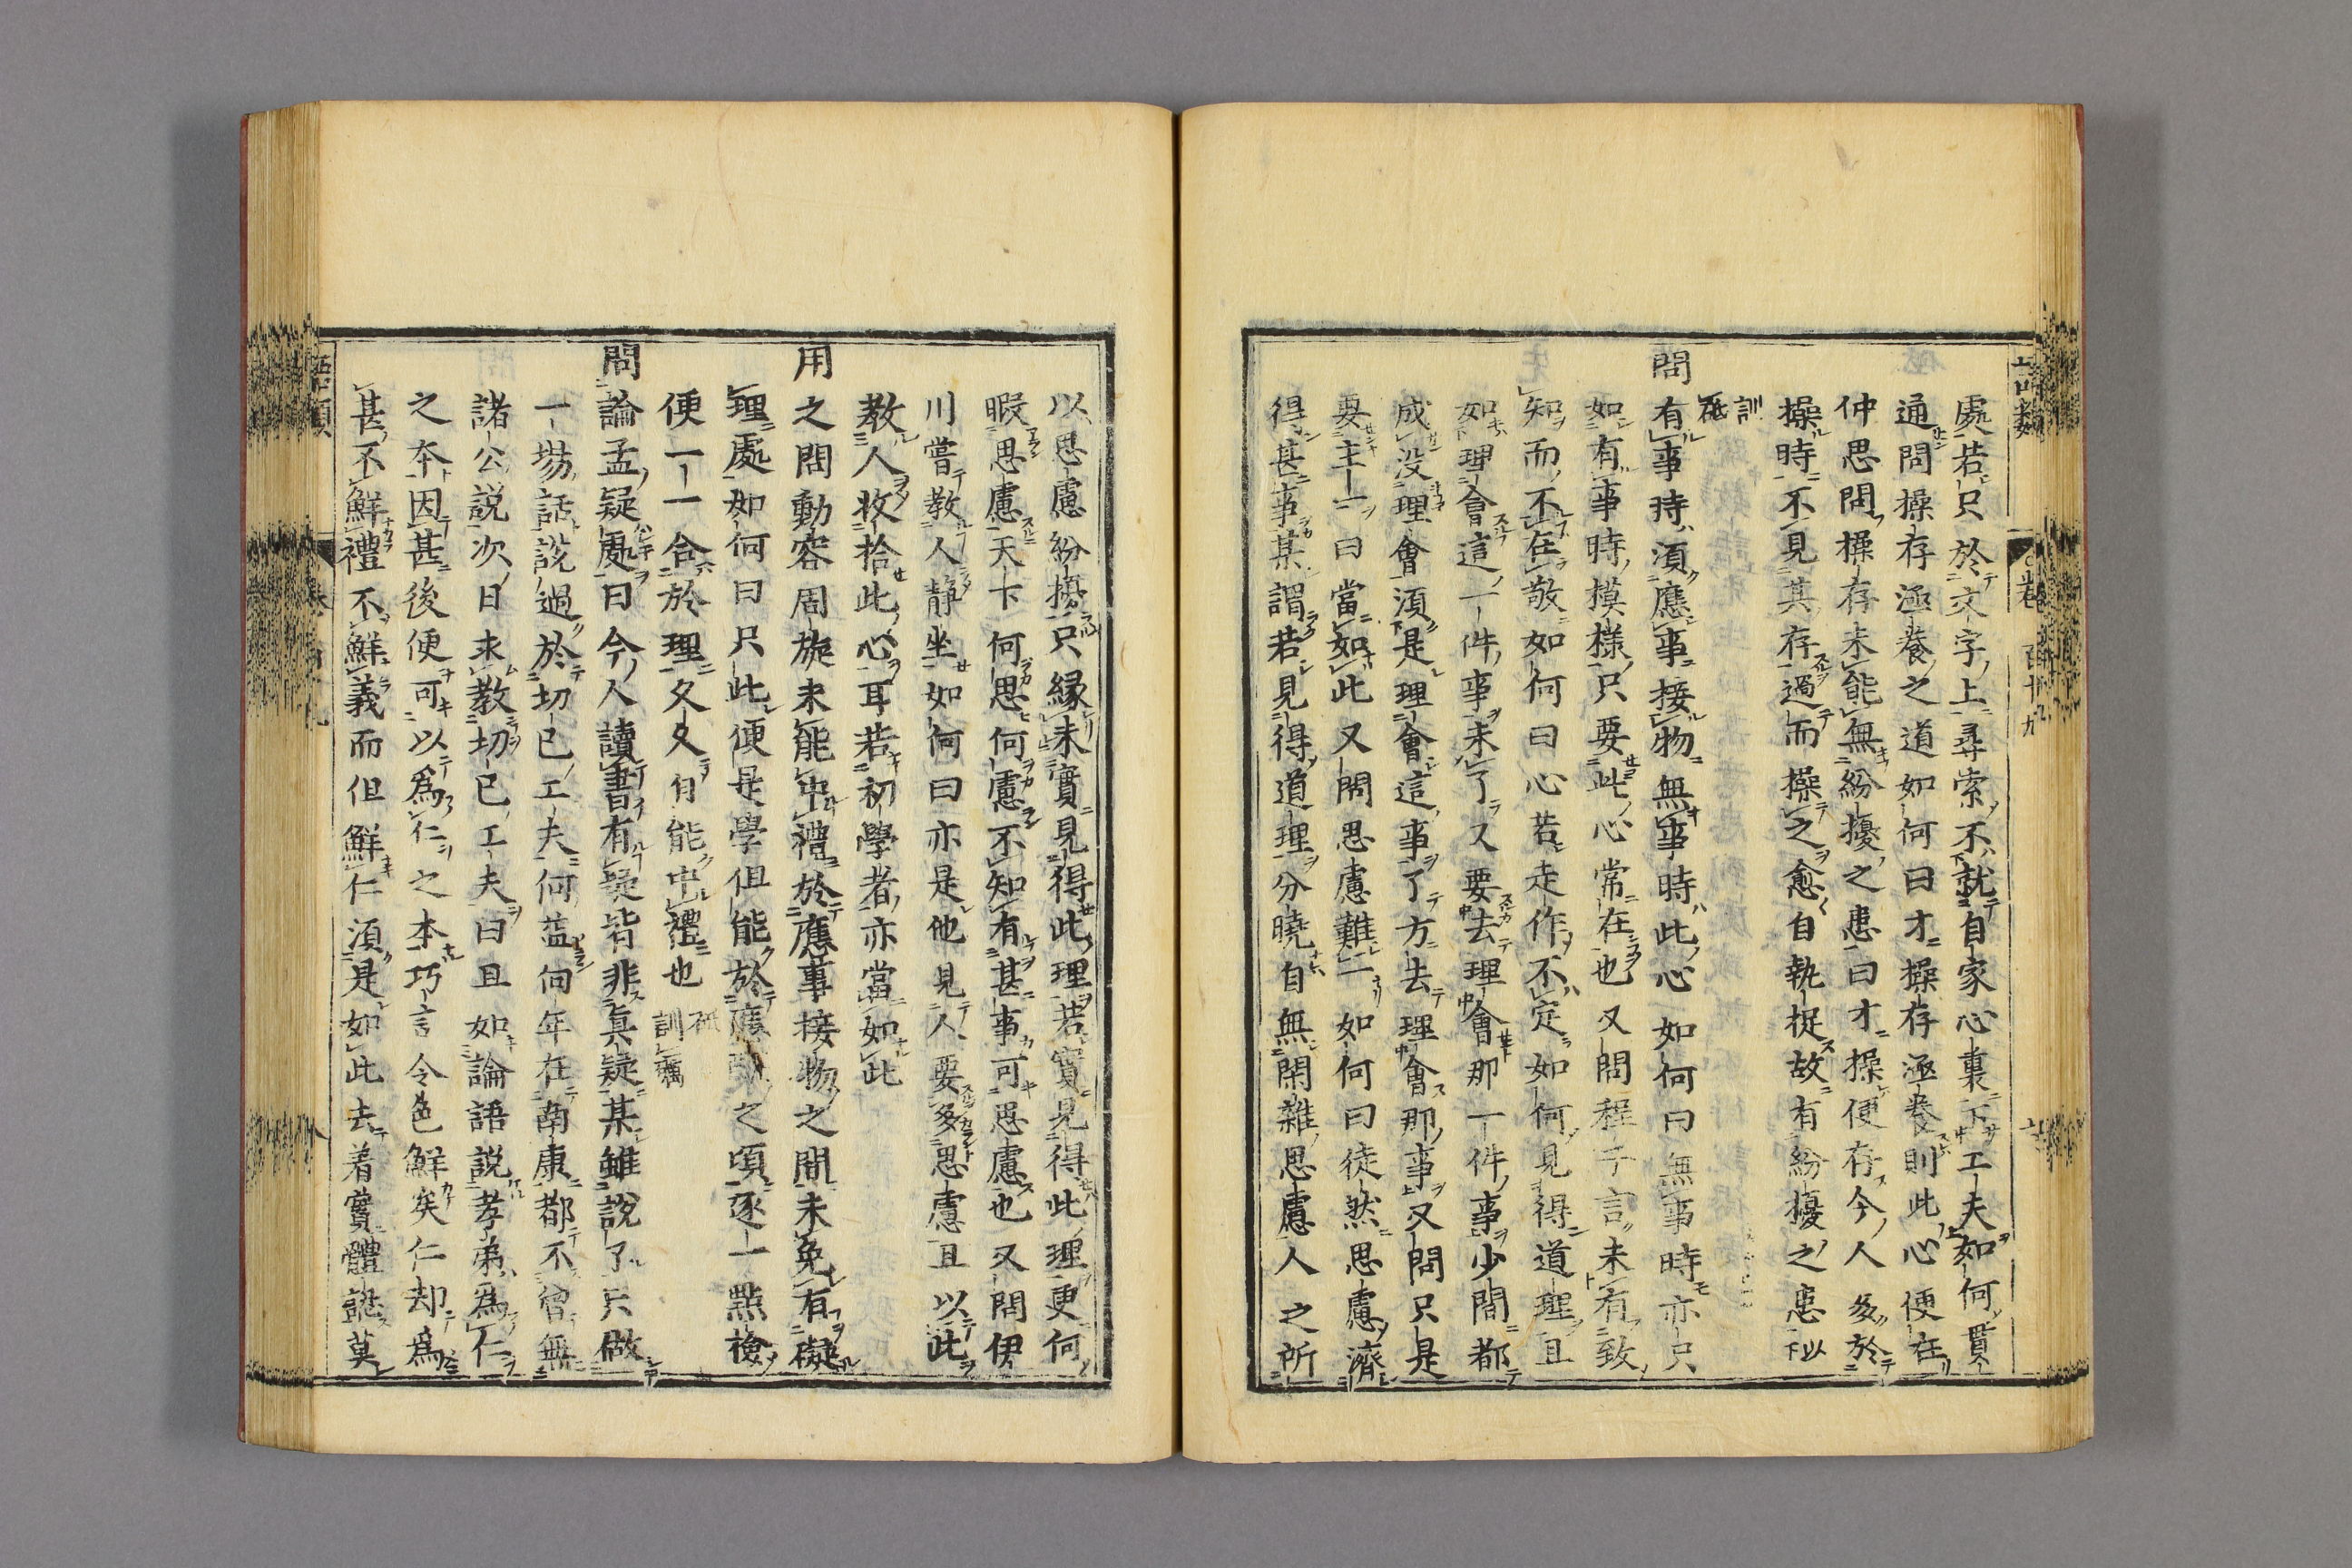 語類 卷百十九 六
處若只於文字上尋索不就自家心裏下工夫如何貫
通問操存涵養之道如何曰才操存涵養則此心便在
仲思問操存未能無紛擾之患曰才操便存今人多於
操時不見其存過而操之愈自執捉故有紛擾之患以下
訓砥
問有事時須應事接物無事時此心如何曰無事時亦只
如有事時模様只要此心常在也又問程子言未有致
知而不在敬如何曰心若走作不定如何見得道理且
如理會這一件事未了又要去理會那一件事少間都
成没理會須是理會這事了方去理會那事又問只是
要主一曰當如此又問思慮難一如何曰徒然思慮濟
得甚事某謂若見得道理分曉自無閑雜思慮人之所
以思慮紛擾只緣未實見得此理若實見得此理更何
暇思慮天下何思何慮不知有甚事可思慮也又問伊
川嘗教人静坐如何曰亦是他見人要多思慮且以此
教人收拾此心耳若初學者亦當如此
用之問動容周旋未能中禮於應事接物之間未免有礙
理處如何曰只此便是學但能於應之頃逐一點檢
便一一合於理久久自能中禮也砥訓礪
問論孟疑處曰今人讀書有疑皆非真疑某雖說了只做
一場話説過於切己工夫何益向年在南康都不曾無
諸公説次日求教切己工夫曰且如論語説孝弟為仁
之本因甚後便可以爲仁之本巧言令色鮮矣仁却爲
甚不鮮禮不鮮義而但鮮仁須是如此去着實體認莫
語類